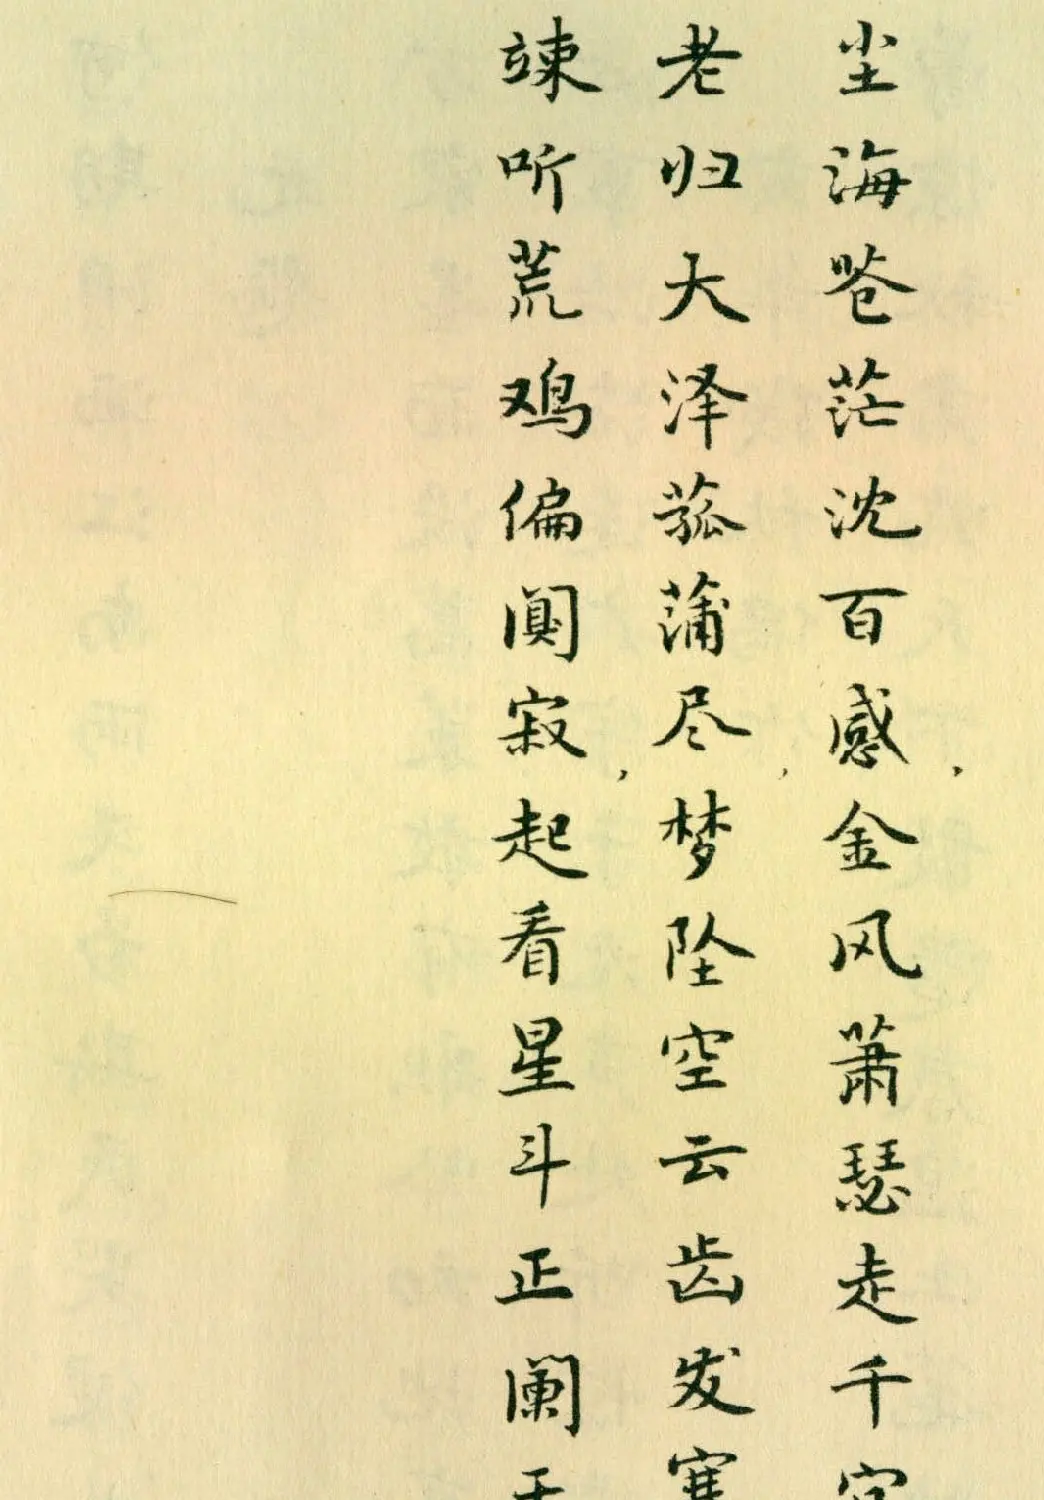 尘海苍茫沈百感，金风萧瑟走千官
老归大泽菰蒲尽，梦坠空云齿发寒
竦听荒鸡偏阒寂，起看星斗正阑干